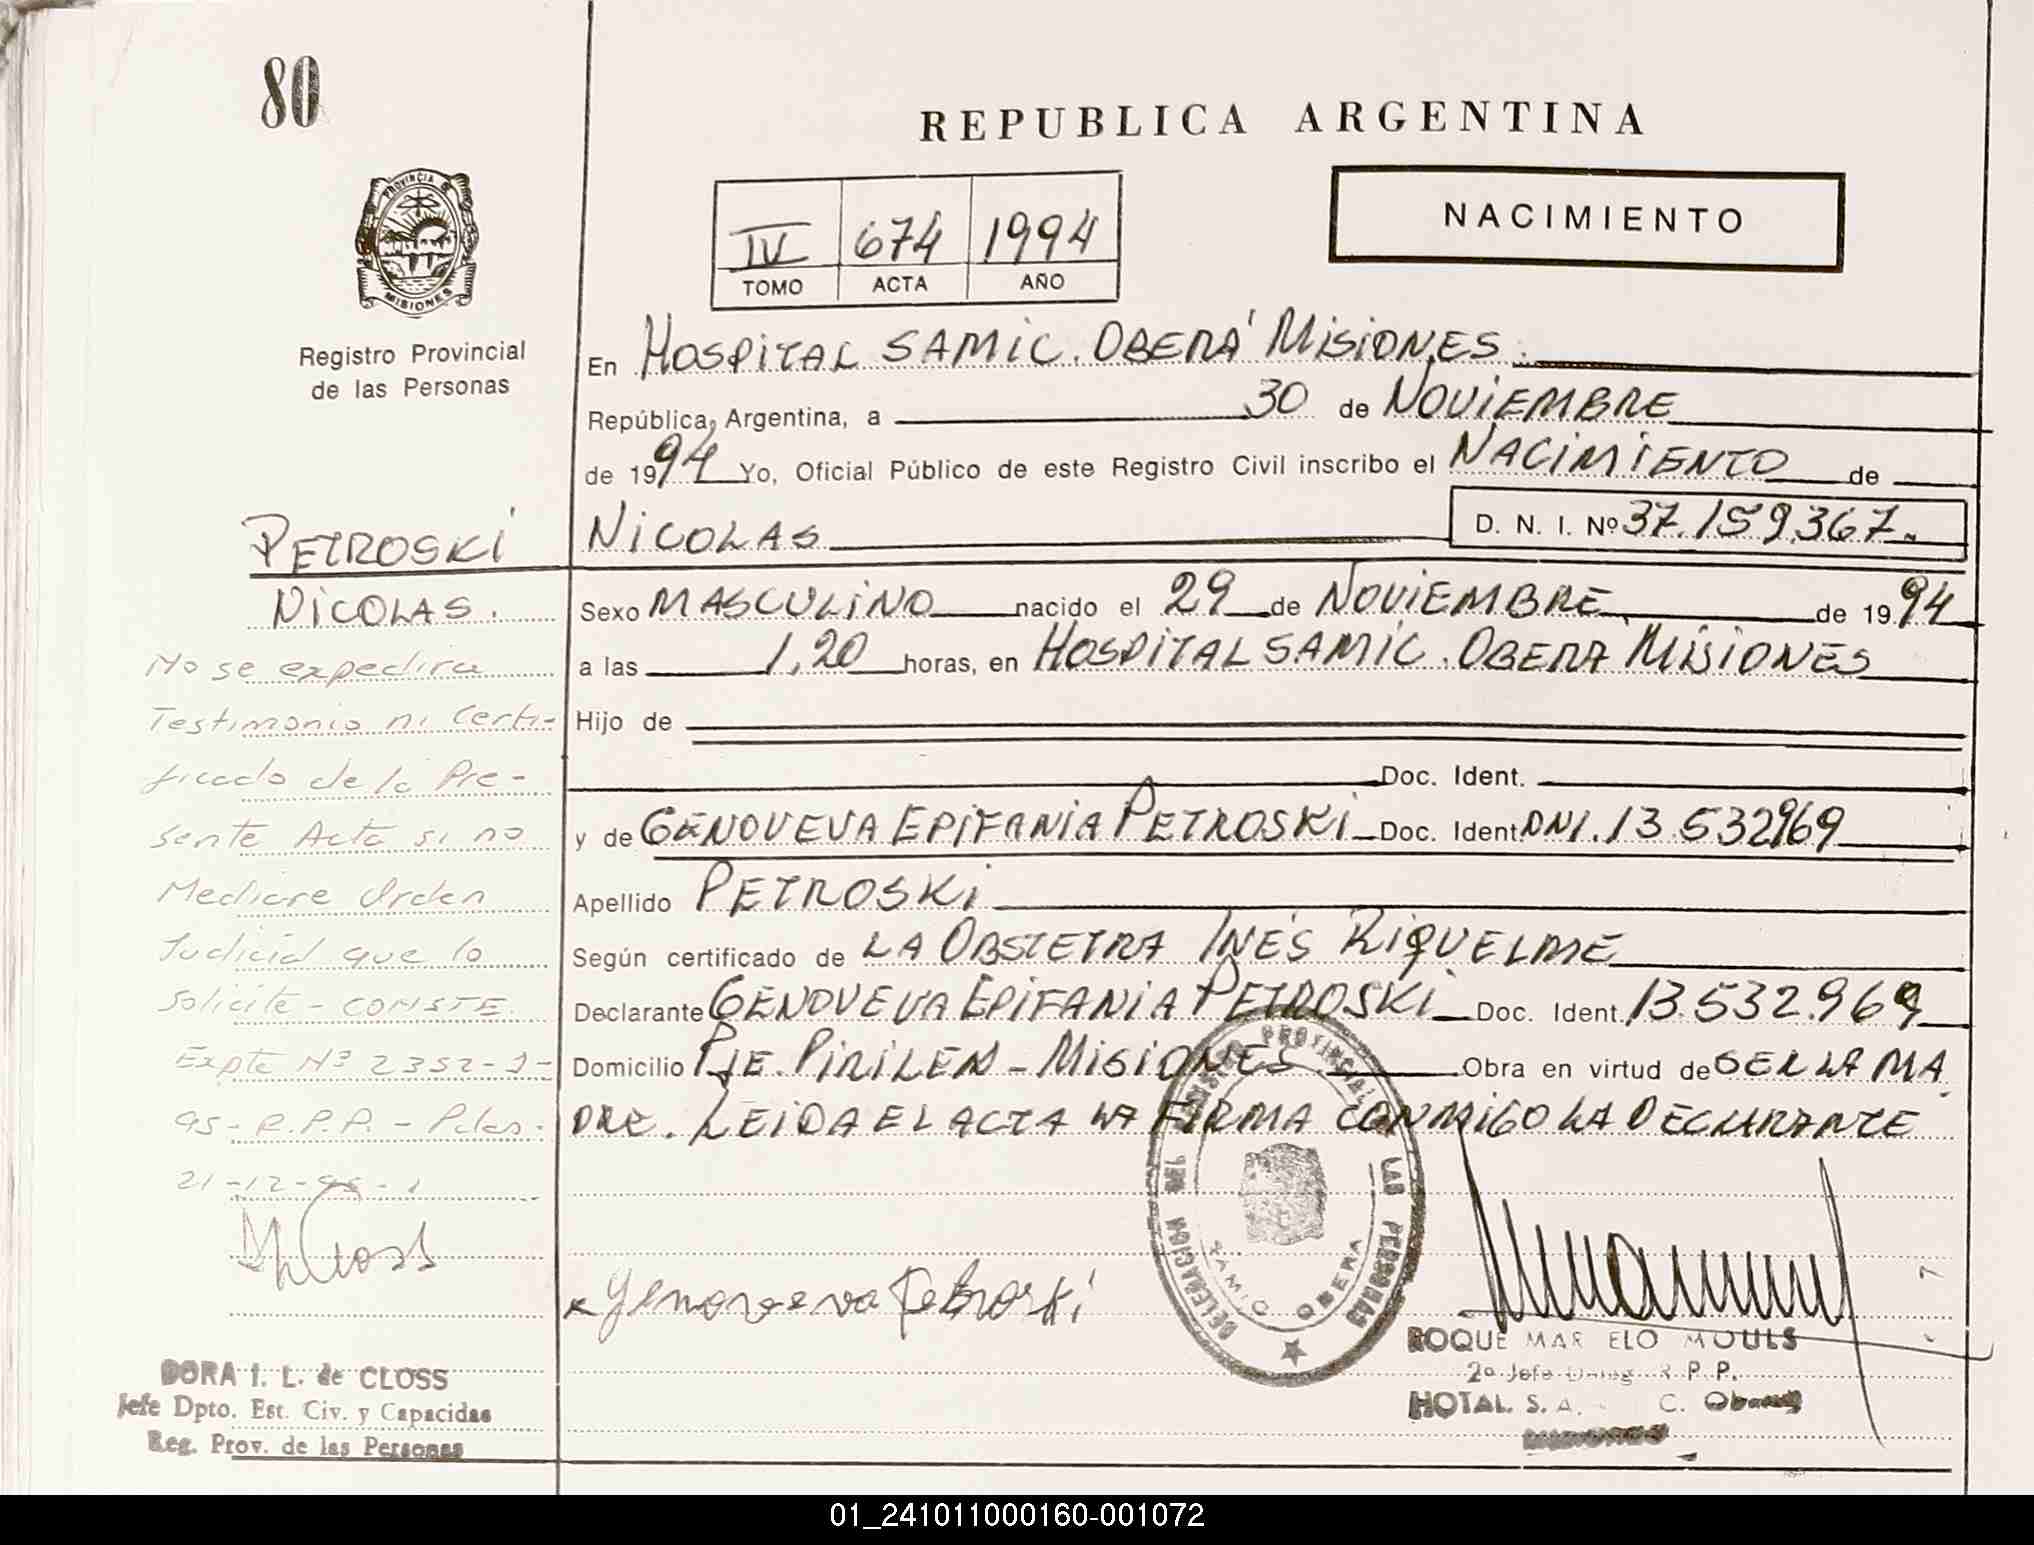 80
REPUBLICA ARGENTINA
NACIMIENTO
IV 674 1994
TOMO ACTA AÑO
PROVINCIA DE
MISIONES
Registro Provincial
de las Personas
En HOSPITAL SAMIC. OBERÁ MISIONES.
República Argentina, a 30 de NOVIEMBRE
de 1994 Yo, Oficial Público de este Registro Civil inscribo el NACIMIENTO de
NICOLAS D. N. I. Nº 37.159.367.
PETROSKI
NICOLAS.
Sexo MASCULINO nacido el 29 de NOVIEMBRE de 1994
a las 1,20 horas, en HOSPITAL SAMIC. OBERA MISIONES
Hijo de
Doc. Ident.
y de GENOVEVA EPIFANIA PETROSKI Doc. Ident. DNI. 13.532969
Apellido PETROSKI
Según certificado de LA OBSTETRA INÉS RIQUELME
Declarante GENOVEVA EPIFANIA PETROSKI Doc. Ident. 13.532.969
Domicilio PJE. PIRILEN - MISIONES Obra en virtud de SER LA MA
DRE. LEIDA EL ACTA LA FIRMA CONMIGO LA DECLARANTE
No se expedira
Testimonio ni Certi-
ficado de la Pre-
sente Acta si no
Mediare Orden
Judicial que lo
solicite - CONSTE.
Expte Nº 2352-J-
95 - R.P.P. - Pdas.
21-12-95-
DELEGACION DEL REGISTRO PROVINCIAL DE LAS PERSONAS
SAMIC OBERA
Genoveva Petroski
DORA I. L. de CLOSS
Jefe Dpto. Est. Civ. y Capacidas
Reg. Prov. de las Personas
ROQUE MAR ELO MOULS
2º Jefe R. P. P.
HOTAL. S. A. C. Obera
01_241011000160-001072